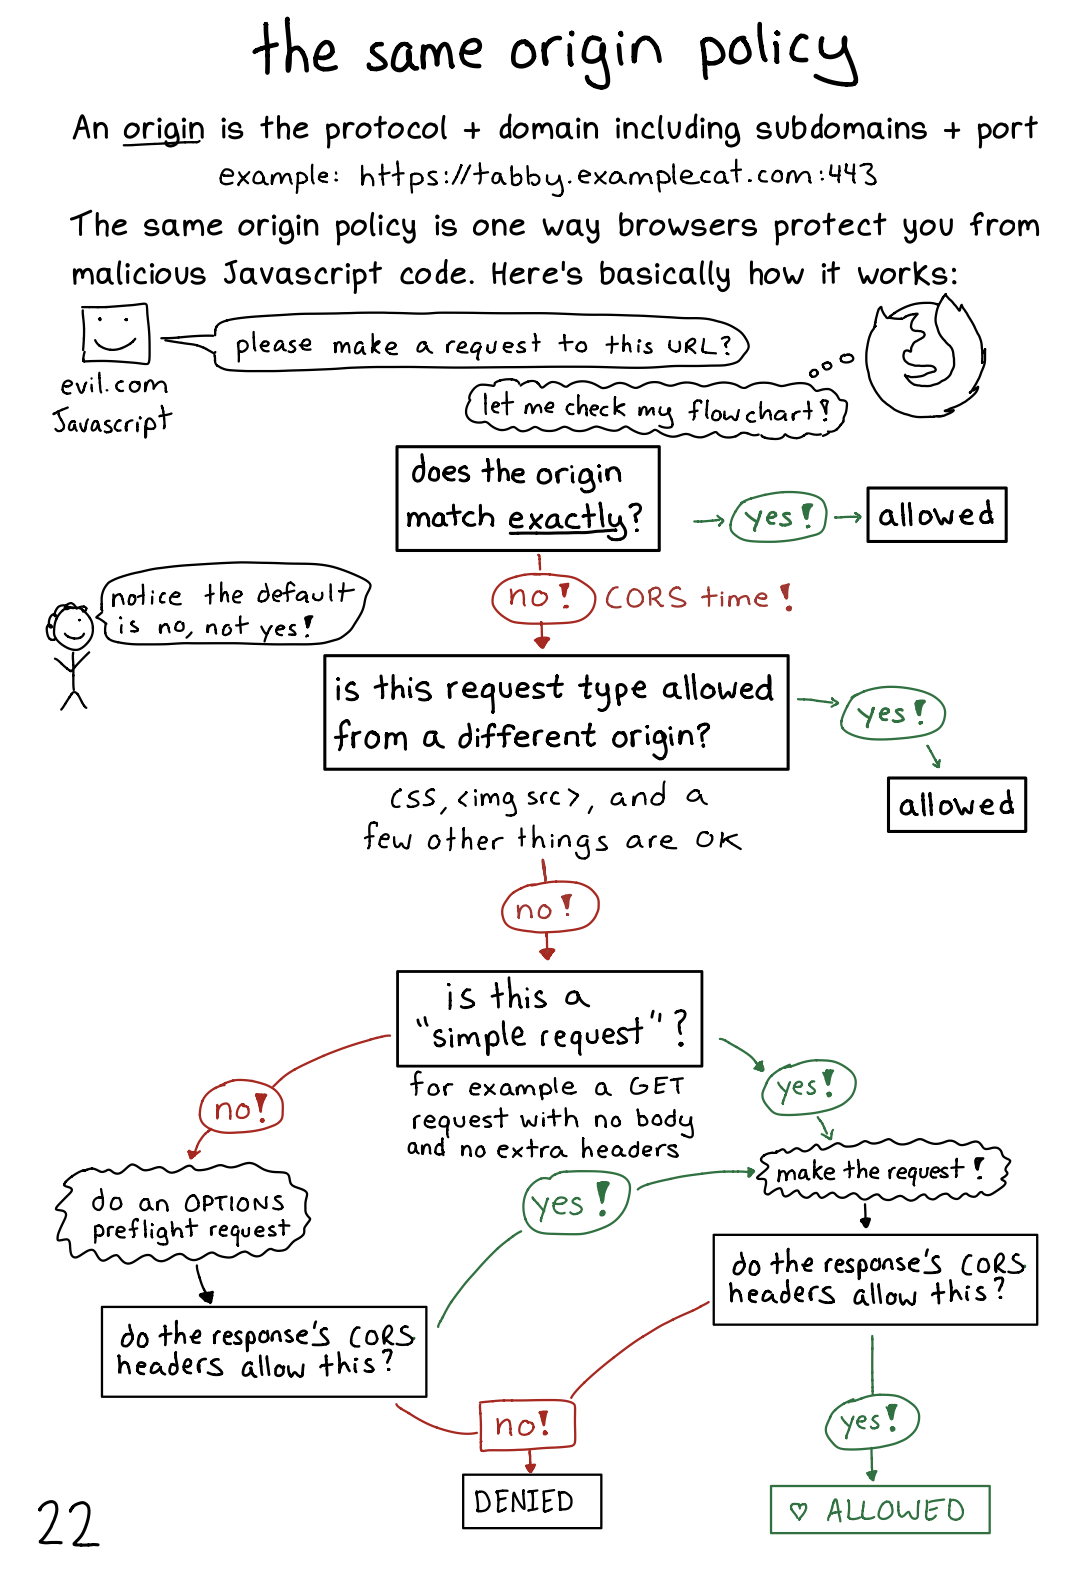 the same origin policy
An origin is the protocol + domain including subdomains + port
example: https://tabby.examplecat.com:443
The same origin policy is one way browsers protect you from
malicious Javascript code. Here's basically how it works:
please make a request to this URL?
evil.com
Javascript
let me check my flowchart!
does the origin
match exactly?
yes!
allowed
no!
CORS time!
notice the default
is no, not yes!
is this request type allowed
from a different origin?
yes!
allowed
CSS, <img src>, and a
few other things are OK
no!
is this a
"simple request"?
for example a GET
request with no body
and no extra headers
no!
yes!
do an OPTIONS
preflight request
make the request!
yes!
do the response's CORS
headers allow this?
do the response's CORS
headers allow this?
no!
yes!
DENIED
♡ ALLOWED
22